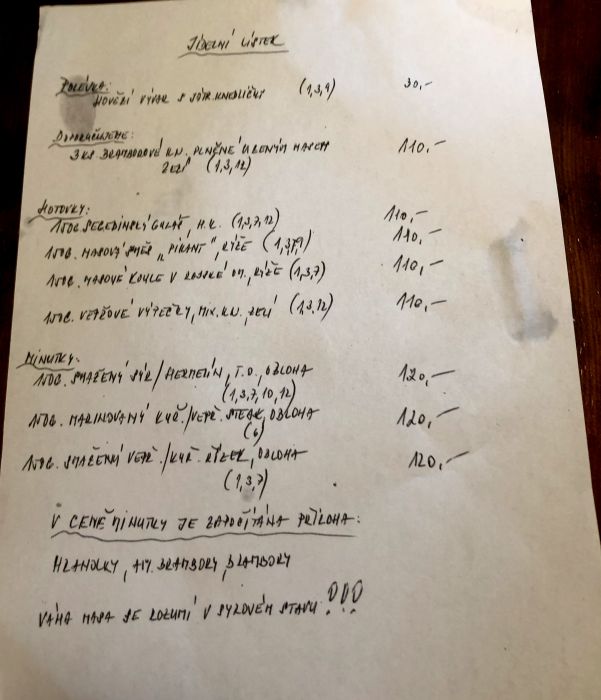 JÍDELNÍ LÍSTEK
POLÉVKA:
HOVĚZÍ VÝVAR S JÁTR. KNEDLÍČKY (1,3,9) 30,-
DOPORUČUJEME:
3KS BRAMBOROVÉ KN. PLNĚNÉ UZENÝM MASEM 110,-
ZELÍ (1,3,12)
HOTOVKY:
150G. SEGEDÍNSKÝ GULÁŠ, H.K. (1,3,7,12) 110,-
150G. MASOVÁ SMĚS „PIKANT", RÝŽE 110,-
150G. MASOVÉ KOULE V RAJSKÉ OM., RÝŽE (1,3,7) 110,-
150G. VEPŘOVÉ VÝPEČKY, MIX. KN., ZELÍ (1,3,12) 110,-
MINUTKY:
150G. SMAŽENÝ SÝR/HERMELÍN, T.O., OBLOHA 120,-
(1,3,7,10,12)
150G. MARINOVANÝ KUŘ./VEPŘ. STEAK, OBLOHA 120,-
(6)
150G. SMAŽENÝ VEPŘ./KUŘ. ŘÍZEK, OBLOHA 120,-
(1,3,7)
V CENĚ MINUTKY JE ZAPOČÍTÁNA PŘÍLOHA:
HRANOLKY, AM. BRAMBORY, BRAMBORY
VÁHA MASA SE ROZUMÍ V SYROVÉM STAVU!!!